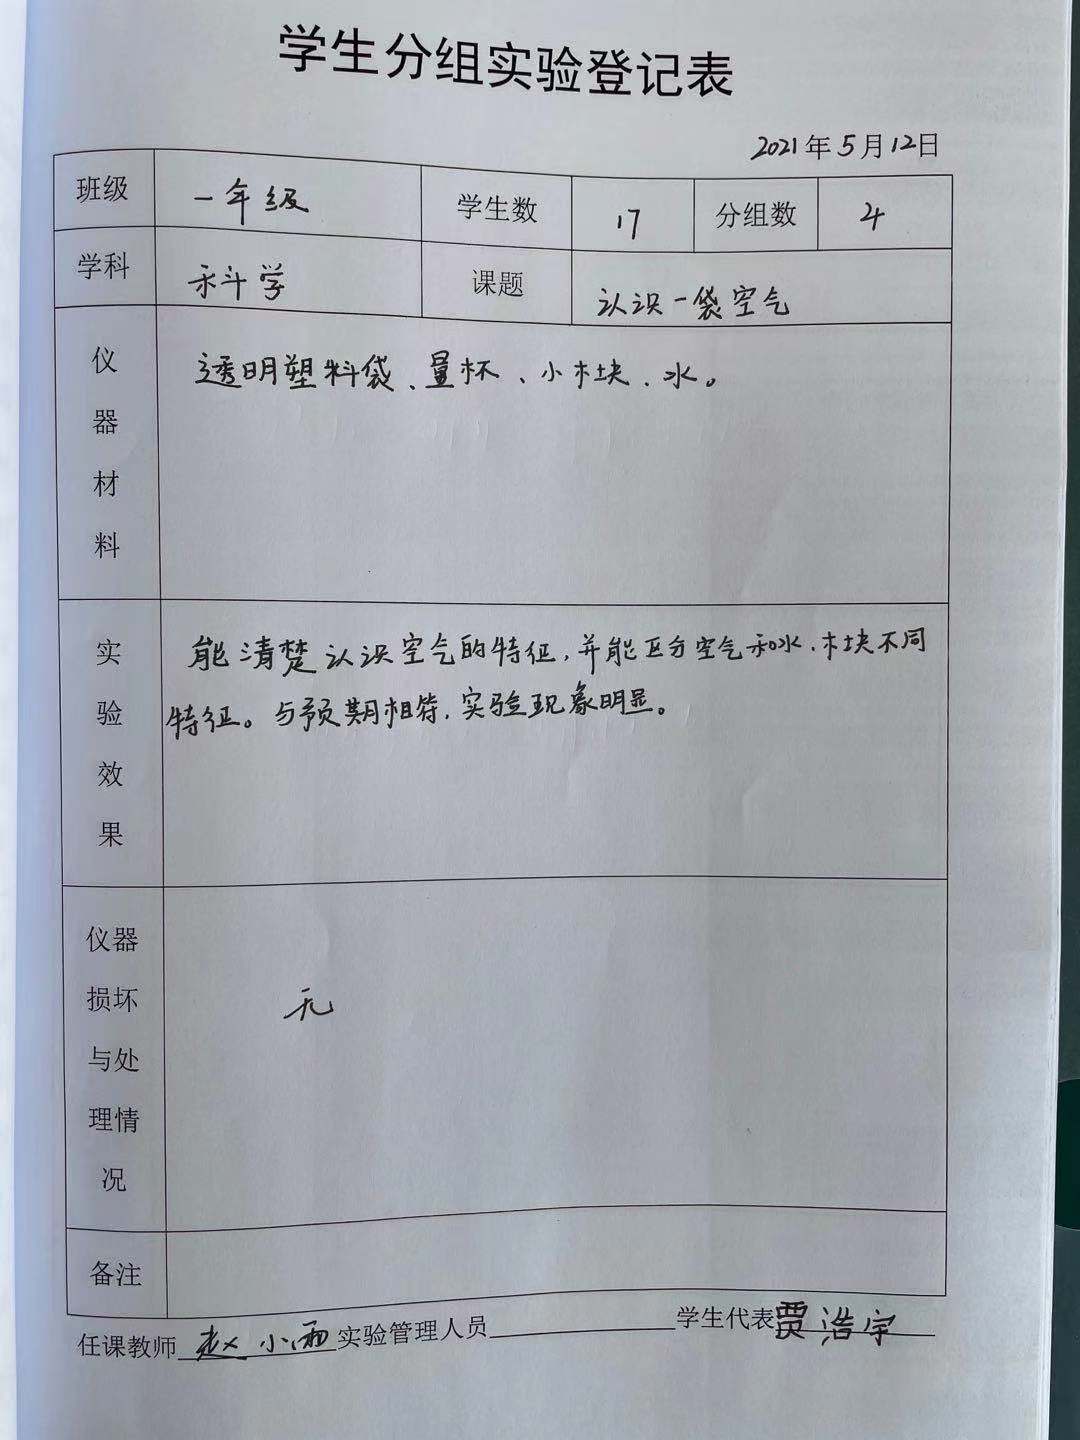 学生分组实验登记表
2021年5月12日
班级 一年级 学生数 17 分组数 4
学科 科学 课题 认识一袋空气
仪器材料 透明塑料袋、量杯、小木块、水。
实验效果 能清楚认识空气的特征,并能区分空气和水、木块不同
特征。与预期相符,实验现象明显。
仪器损坏与处理情况 无
备注
任课教师 赵小雨 实验管理人员 学生代表 贾浩宇